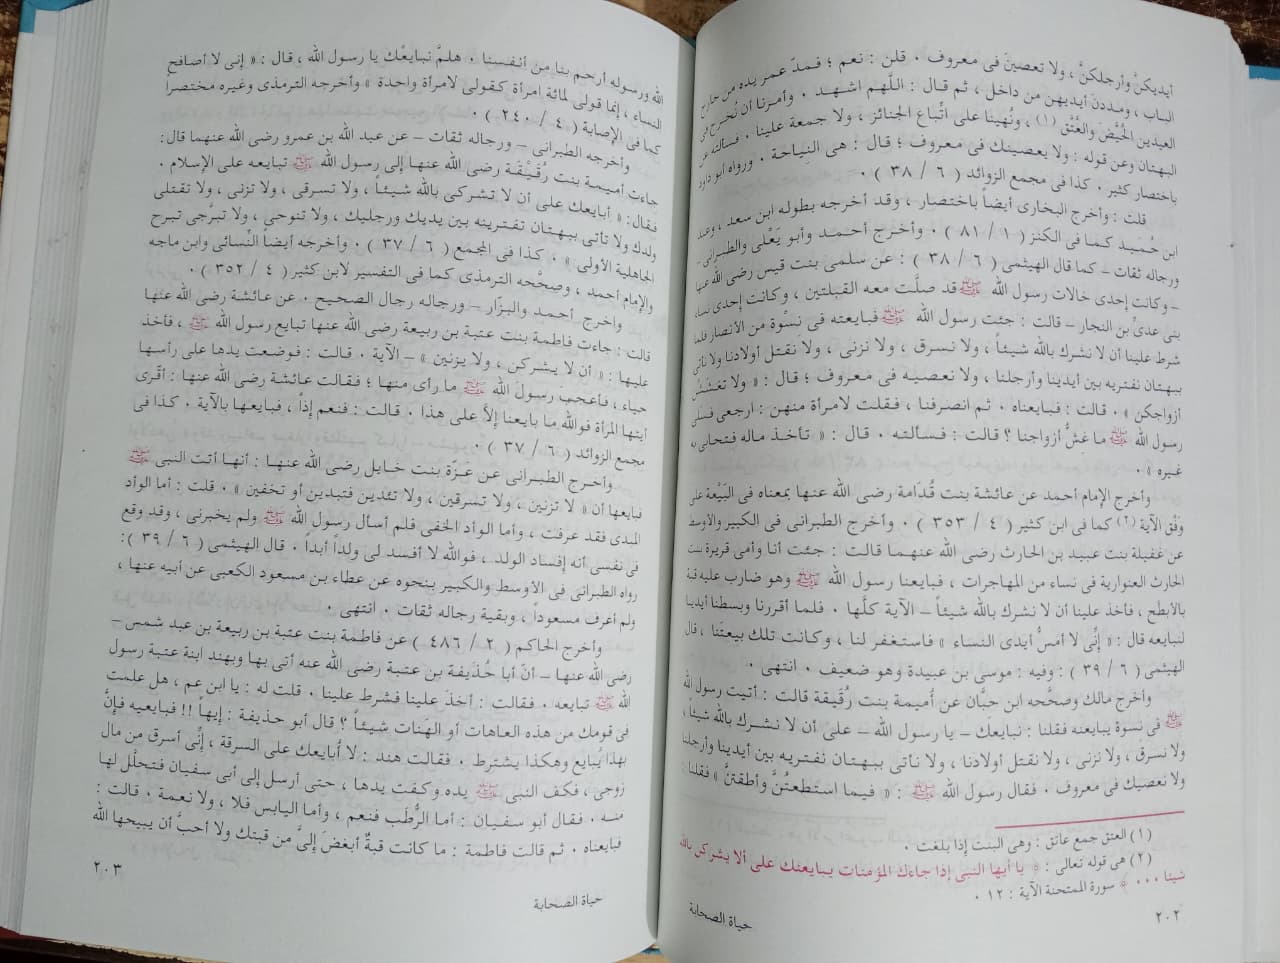 أيديكنَّ وأرجلكنَّ ، ولا تعصينَ فى معروف ٠ قلن : نعم ؛ فمدّ عمر يده من خارج
الباب ، ومددنَ أيديهن من داخل ، ثم قال : اللَّهم اشهد ٠ وأمرنا أن نُخرج فى
العيدين الحُيَّضَ والعُتَّق (١) ، ونُهينا على أتِّباع الجنائز ، ولا جمعة علينا ٠ فسألته عن
البهتان وعن قوله : ولا يعصينك فى معروف ؛ قال : هى النِياحة ٠ ورواه أبو داود
باختصار كثير ٠ كذا فى مجمع الزوائد ( ٦ / ٣٨ ) ٠
قلت : وأخرج البخارى أيضاً باختصار ، وقد أخرجه بطوله ابن سعد ، وعبد
ابن حُميد كما فى الكنز ( ١ / ٨١ ) ٠ وأخرج أحمد وأبو يَعْلى والطبرانى –
ورجاله ثقات – كما قال الهيثمى ( ٦ / ٣٨ ) : عن سلمى بنت قيس رضى الله عنها
– وكانت إحدى خالات رسول الله ﷺ قد صلَّت معه القبلتين ، وكانت إحدى نساء
بنى عدىِّ بن النجار – قالت : جئت رسول الله ﷺ فبايعته فى نِسْوة من الأنصار فلما
شرط علينا أن لا نشرك بالله شيئاً ، ولا نسرق ، ولا نزنى ، ولا نقتل أولادنا ولا نأتى
ببهتان نفتريه بين أيدينا وأرجلنا ، ولا نعصيه فى معروف ؛ قال : « ولا تغششن
أزواجكن » ٠ قالت : فبايعناه ٠ ثم انصرفنا ، فقلت لامرأة منهن : ارجعى فسلى
رسول الله ﷺ ما غشُّ أزواجنا ؟ قالت : فسألته ٠ قال : « تأخذ ماله فتحابى به
غيره » ٠
وأخرج الإمام أحمد عن عائشة بنت قُدَامة رضى الله عنها بمعناه فى البَيْعة على
وَفْق الآية (٢) كما فى ابن كثير ( ٤ / ٣٥٣ ) ٠ وأخرج الطبرانى فى الكبير والأوسط
عن غفيلة بنت عبيد بن الحارث رضى الله عنهما قالت : جئت أنا وأمى قريرة بنت
الحارث العتوارية فى نساء من المهاجرات ، فبايعنا رسول الله ﷺ وهو ضارب عليه قبة
بالأبطح ، فأخذ علينا أن لا نشرك بالله شيئاً – الآية كلَّها ٠ فلما أقررنا وبسطنا أيدينا
لنبايعه قال : « إنِّى لا أمسُّ أيدى النساء » فاستغفر لنا ، وكانت تلك بيعتَنا ، قال
الهيثمى ( ٦ / ٣٩ ) : وفيه : موسى بن عبيدة وهو ضعيف ٠ انتهى ٠
وأخرج مالك وصحَّحه ابن حبَّان عن أُميمة بنت رُقَيقة قالت : أتيت رسول الله
ﷺ فى نسوة يبايعنه فقلنا : نبايعكَ – يا رسول الله – على أن لا نشرك بالله شيئا ،
ولا نسرق ، ولا نزنى ، ولا نقتل أولادنا ، ولا نأتى ببهتان نفتريه بين أيدينا وأرجلنا
ولا نعصيك فى معروف ٠ فقال رسول الله ﷺ : « فيما استطعتُنَّ وأطقتنَّ » فقلنا :
(١) العتق جمع عاتق : وهى البنت إذا بلغت ٠
(٢) هى قوله تعالى : ﴿ يا أيها النبى إذا جاءك المؤمنات يبايعنك على ألا يشركن بالله
شيئا ٠٠٠ ﴾ سورة الممتحنة الآية : ١٢ ٠
٢٠٢
حياة الصحابة
الله ورسوله أرحم بنا من أنفسنا ٠ هلمَّ نبايعْك يا رسول الله ، قال : « إنى لا أصافح
النساء ، إنما قولى لمائة امرأة كقولى لامرأة واحدة » وأخرجه الترمذى وغيره مختصراً
كما فى الإصابة ( ٤ / ٢٤٠ ) ٠
وأخرجه الطبرانى – ورجاله ثقات – عن عبد الله بن عمرو رضى الله عنهما قال :
جاءت أميمة بنت رُقَيْقة رضى الله عنها إلى رسول الله ﷺ تبايعه على الإسلام ٠
فقال : « أبايعك على أن لا تشركى بالله شيئاً ، ولا تسرقى ، ولا تزنى ، ولا تقتلى
ولدك ولا تأتى ببهتان تفترينه بين يديك ورجليك ، ولا تنوحى ، ولا تبرَّجى تبرج
الجاهلية الأولى » ٠ كذا فى المجمع ( ٦ / ٣٧ ) ٠ وأخرجه أيضاً النِّسائى وابن ماجه
والإمام أحمد ، وصحَّحه الترمذى كما فى التفسير لابن كثير ( ٤ / ٣٥٢ ) ٠
وأخرج أحمد والبزَّار – ورجاله رجال الصحيح ٠ عن عائشة رضى الله عنها
قالت : جاءت فاطمة بنت عتبة بن ربيعة رضى الله عنها تبايع رسول الله ﷺ ، فأخذ
عليها : « أن لا يشركن ، ولا يزنين » – الآية ٠ قالت : فوضعت يدها على رأسها
حياء ، فأعجب رسول الله ﷺ ما رأى منها ؛ فقالت عائشة رضى الله عنها : أقرِّى
أيتها المرأة فوالله ما بايعنا إلاَّ على هذا ٠ قالت : فنعم إذاً ، فبايعها بالآية ٠ كذا فى
مجمع الزوائد ( ٦ / ٣٧ ) ٠
وأخرج الطبرانى عن عزة بنت خايل رضى الله عنها : أنها أتت النبى ﷺ
فبايعها أن « لا تزنين ، ولا تسرقين ، ولا تئدين فتبدين أو تخفين » ٠ قلت : أما الوأد
المبدى فقد عرفت ، وأما الوأد الخفى فلم أسأل رسول الله ﷺ ولم يخبرنى ، وقد وقع
فى نفسى أنه إفساد الولد ، فوالله لا أفسد لى ولداً أبداً ٠ قال الهيثمى ( ٦ / ٣٩ ) :
رواه الطبرانى فى الأوسط والكبير بنحوه عن عطاء بن مسعود الكعبى عن أبيه عنها ،
ولم أعرف مسعوداً ، وبقية رجاله ثقات ٠ انتهى ٠
وأخرج الحاكم ( ٢ / ٤٨٦ ) عن فاطمة بنت عتبة بن ربيعة بن عبد شمس –
رضى الله عنها – أنّ أبا حُذيفة بن عتبة رضى الله عنه أتى بها وبهند ابنة عتبة رسول
الله ﷺ تبايعه ٠ فقالت : أخذَ علينا فشرط علينا ٠ قلت له : يا ابن عم ، هل علمت
فى قومك من هذه العاهات أو الهَنات شيئاً ؟ قال أبو حذيفة : إيهاً !! فبايعيه فإنَّ
بهذا يُبايع وهكذا يشترط ٠ فقالت هند : لا أبايعك على السرقة ، إنِّى أسرق من مال
زوجى ، فكف النبى ﷺ يده وكفت يدها ، حتى أرسل إلى أبى سفيان فتحلَّل لها
منه ٠ فقال أبو سفيان : أما الرُّطَب فنعم ، وأما اليابس فلا ، ولا نعمة ٠ قالت :
فبايعناه ٠ ثم قالت فاطمة : ما كانت قبةٌ أبغض إلىَّ من قبتك ولا أحبَّ أن يبيحها الله
٢٠٣
حياة الصحابة